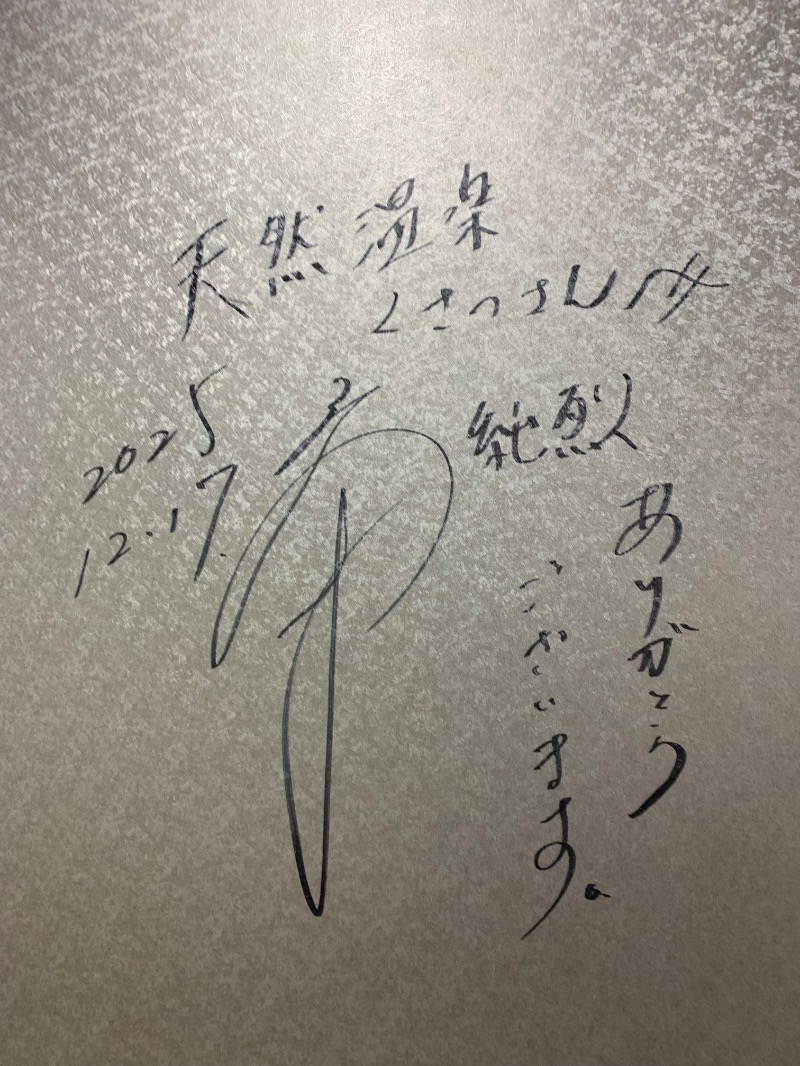 天然温泉
くさつさん江
2025
12.17.
純烈
ありがとう
ございます。